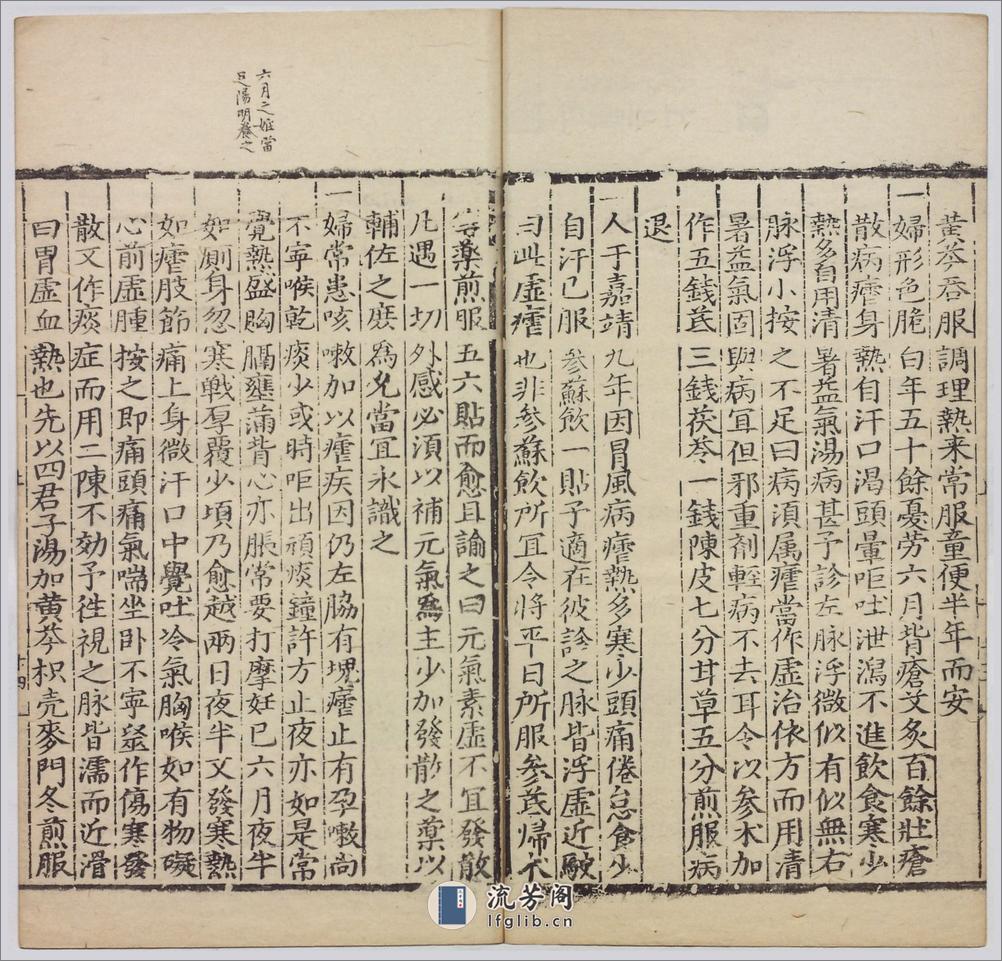 黄芩吞服調理熱来常服童便半年而安
一婦形色脆白年五十餘憂劳六月背瘡艾灸百餘壯瘡
散病瘧身熱自汗口渴頭暈嘔吐泄瀉不進飲食寒少
熱多自用清暑益氣湯病甚予診左脉浮微似有似無右
脉浮小按之不足曰病湏属瘧當作虛治依方而用清
暑益氣固與病冝但邪重剤輕病不去耳令以参术加
作五錢芪三錢茯苓一錢陳皮七分甘草五分煎服病
退
一人于嘉靖九年因冒風病瘧熱多寒少頭痛倦怠食少
自汗已服参蘇飲一貼予適在彼診之脉皆浮虛近駃
曰此虛瘧也非参蘇飲所冝令將平日所服参芪歸术
等藥煎服五六貼而愈且諭之曰元氣素虛不冝發散
凡遇一切外感必湏以補元氣為主少加發散之藥以
輔佐之庶為允當冝永識之
一婦常患咳嗽加以瘧疾因仍左脇有塊瘧止有孕嗽尚
不寧喉乾痰少或時嘔出頑痰鐘許方止夜亦如是常
覺熱盛胸膈壅滿背心亦脹常要打摩妊已六月夜半
如厠身忽寒戰厚覆少頃乃愈越兩日夜半又發寒熱
如瘧肢節痛上身微汗口中覺吐冷氣胸喉如有物礙
心前虛腫按之即痛頭痛氣喘坐卧不寧醫作傷寒發
散又作痰症而用二陳不効予徃視之脉皆濡而近滑
曰胃虛血熱也先以四君子湯加黄芩枳壳麥門冬煎服
六月之妊當
足陽明養之
十四
流芳阁
lfglib.cn